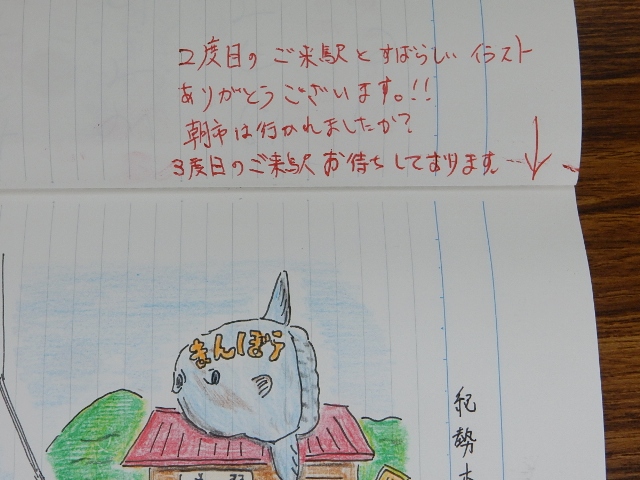 2度目のご来駅とすばらしいイラスト
ありがとうございます。!!
朝市は行かれましたか?
3度目のご来駅お待ちしております…
まんぼう
紀勢本